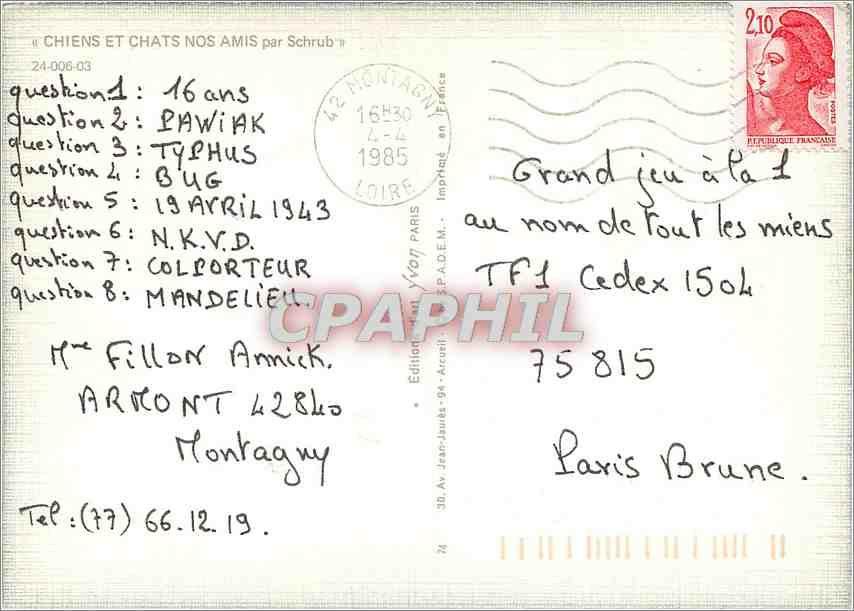 « CHIENS ET CHATS NOS AMIS par Schrub »
24-006-03
question 1 : 16 ans
question 2 : PAWIAK
question 3 : TYPHUS
question 4 : BUG
question 5 : 19 AVRIL 1943
question 6 : N.K.V.D.
question 7 : COLPORTEUR
question 8 : MANDELIEU.
Mme Fillon Annick.
ARMONT 42840
Montagny
Tel : (77) 66.12.19.
42 MONTAGNY
16H30
4-4
1985
LOIRE
74 30, Av. Jean-Jaurès - 94 - Arcueil - S.P.A.D.E.M. - Imprimé en France
• Éditions d'art Yvon PARIS
2,10
POSTES
REPUBLIQUE FRANCAISE
Grand jeu à la 1
au nom de tout les miens
TF1 Cedex 1504
75 815
Paris Brune.
CPAPHIL